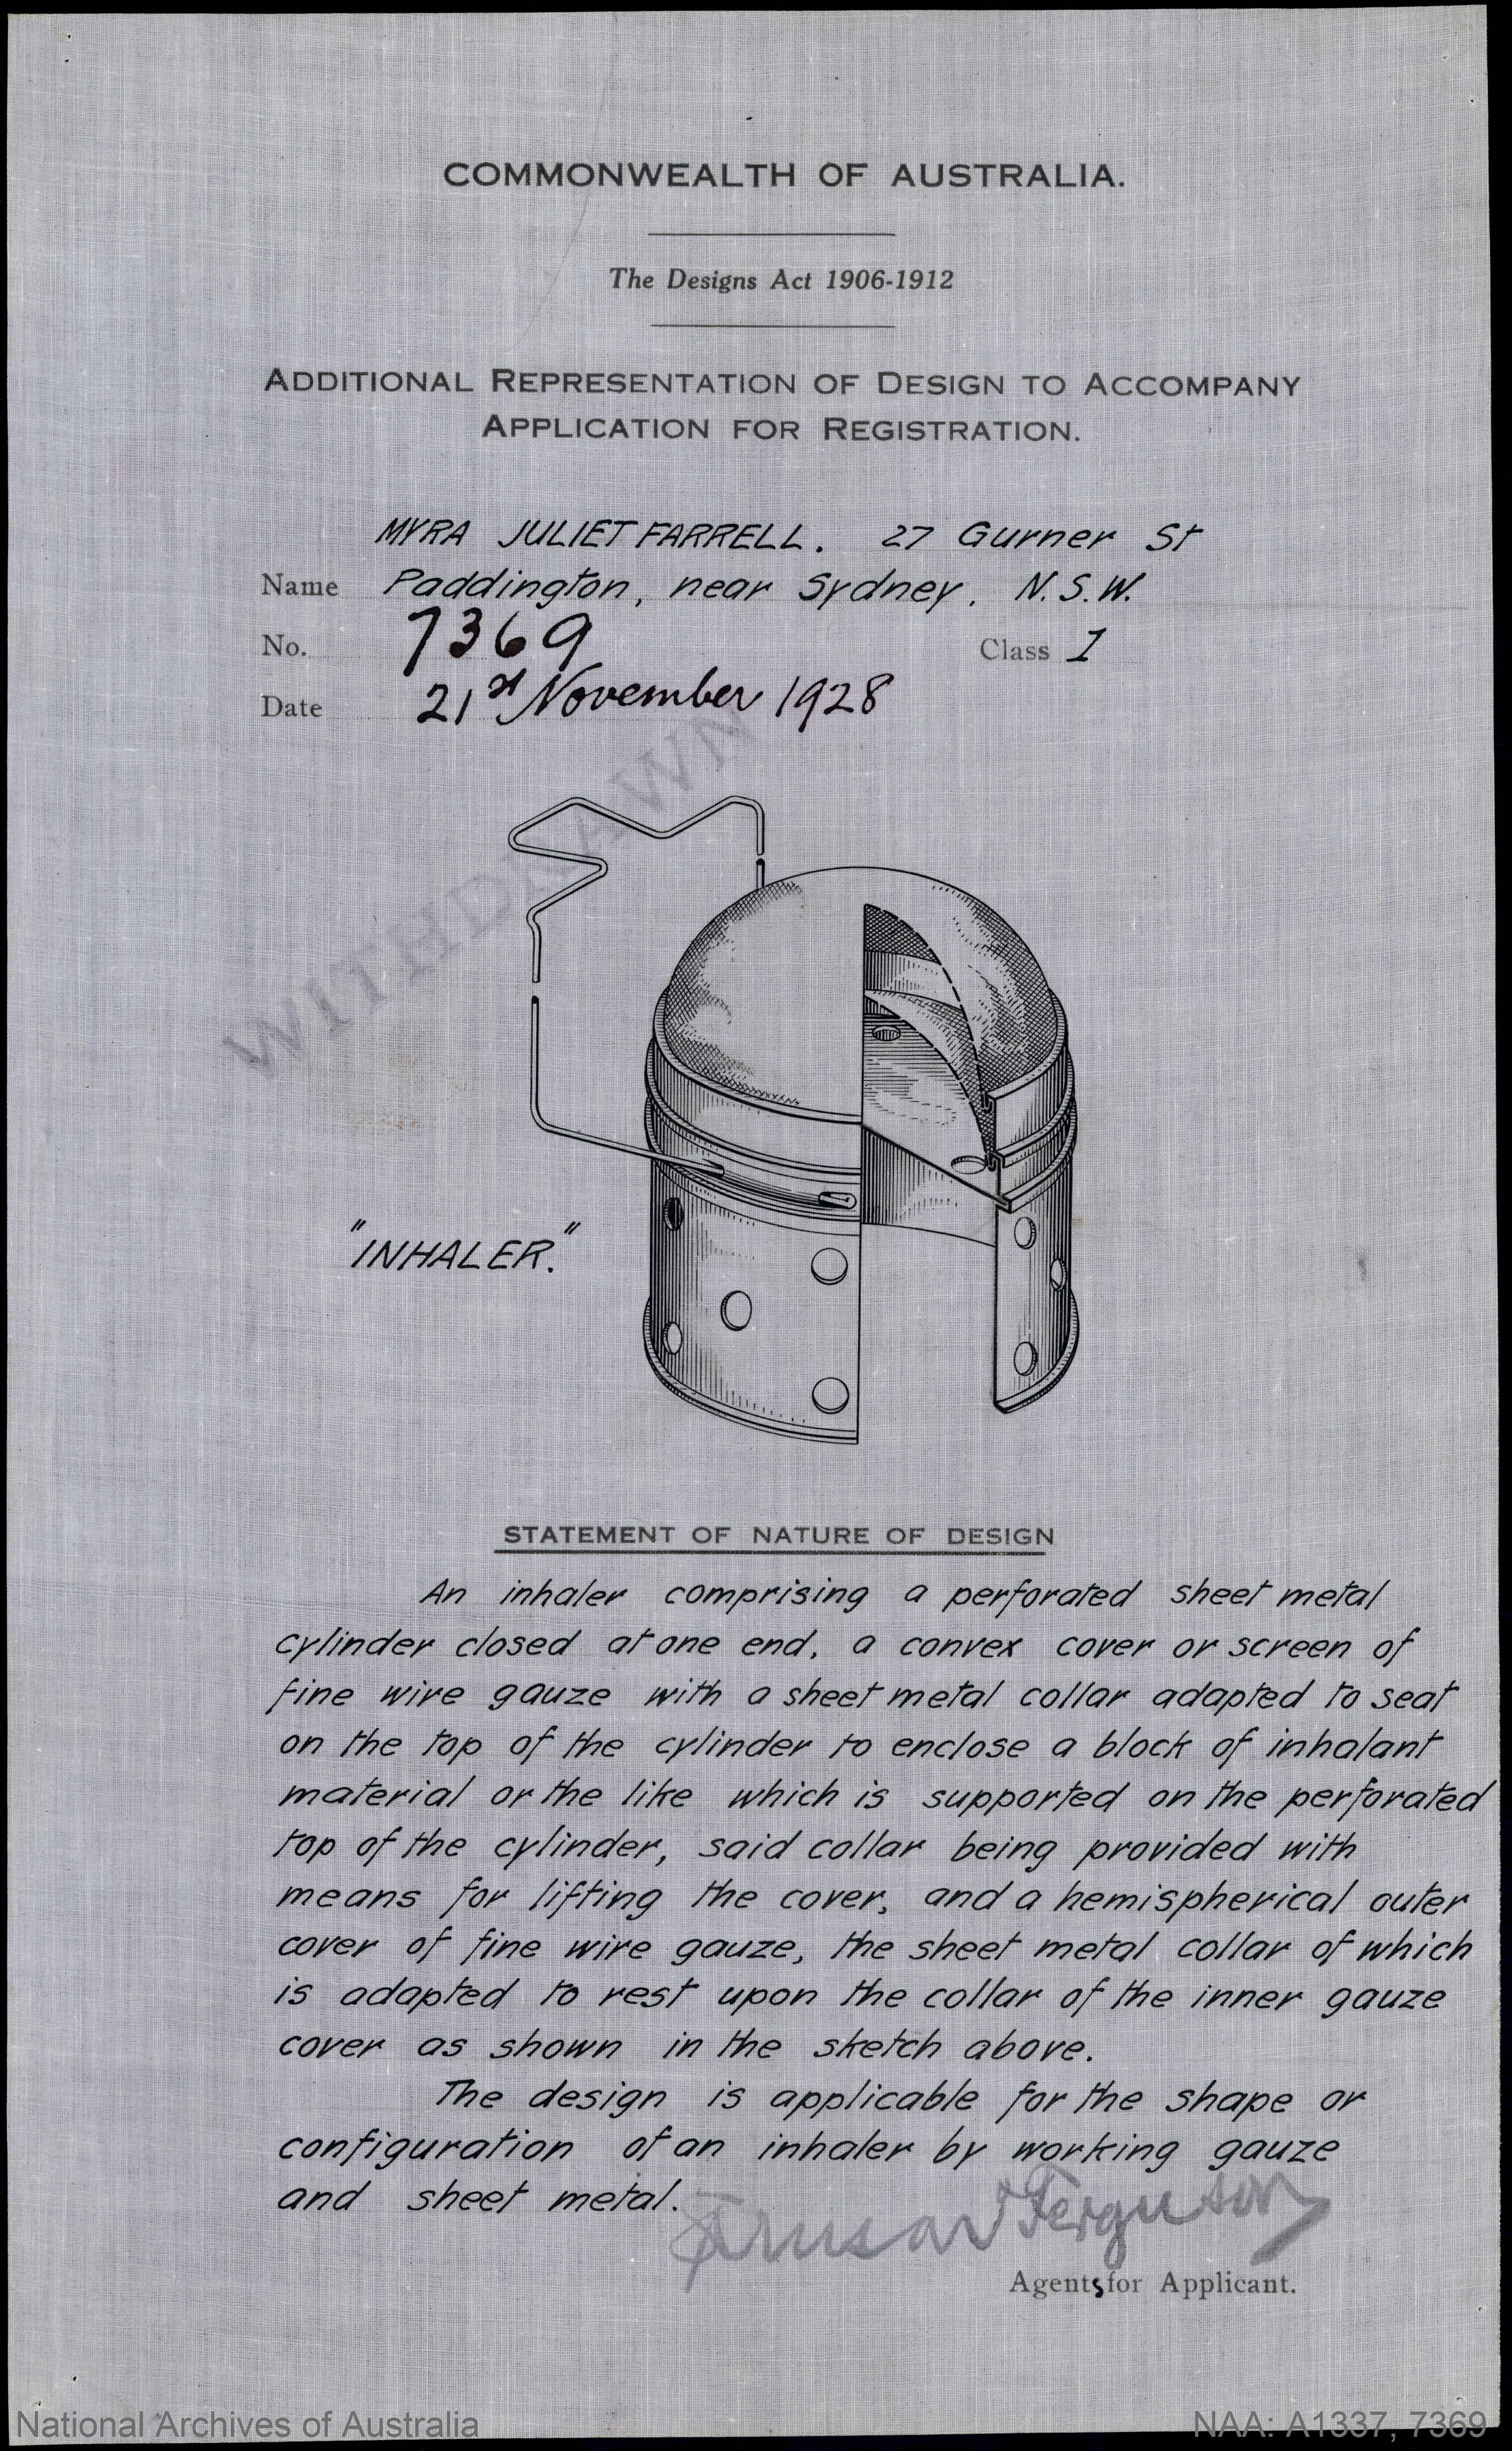 COMMONWEALTH OF AUSTRALIA.
The Designs Act 1906-1912
ADDITIONAL REPRESENTATION OF DESIGN TO ACCOMPANY
APPLICATION FOR REGISTRATION.
MYRA JULIET FARRELL. 27 Gurner St
Name Paddington, near Sydney. N.S.W.
No. 7369 Class 1
Date 21st November 1928
WITHDRAWN
"INHALER."
STATEMENT OF NATURE OF DESIGN
An inhaler comprising a perforated sheet metal
cylinder closed at one end, a convex cover or screen of
fine wire gauze with a sheet metal collar adapted to seat
on the top of the cylinder to enclose a block of inhalant
material or the like which is supported on the perforated
top of the cylinder, said collar being provided with
means for lifting the cover, and a hemispherical outer
cover of fine wire gauze, the sheet metal collar of which
is adapted to rest upon the collar of the inner gauze
cover as shown in the sketch above.
The design is applicable for the shape or
configuration of an inhaler by working gauze
and sheet metal.
Ferguson
Agents for Applicant.
National Archives of Australia
NAA: A1337, 7369